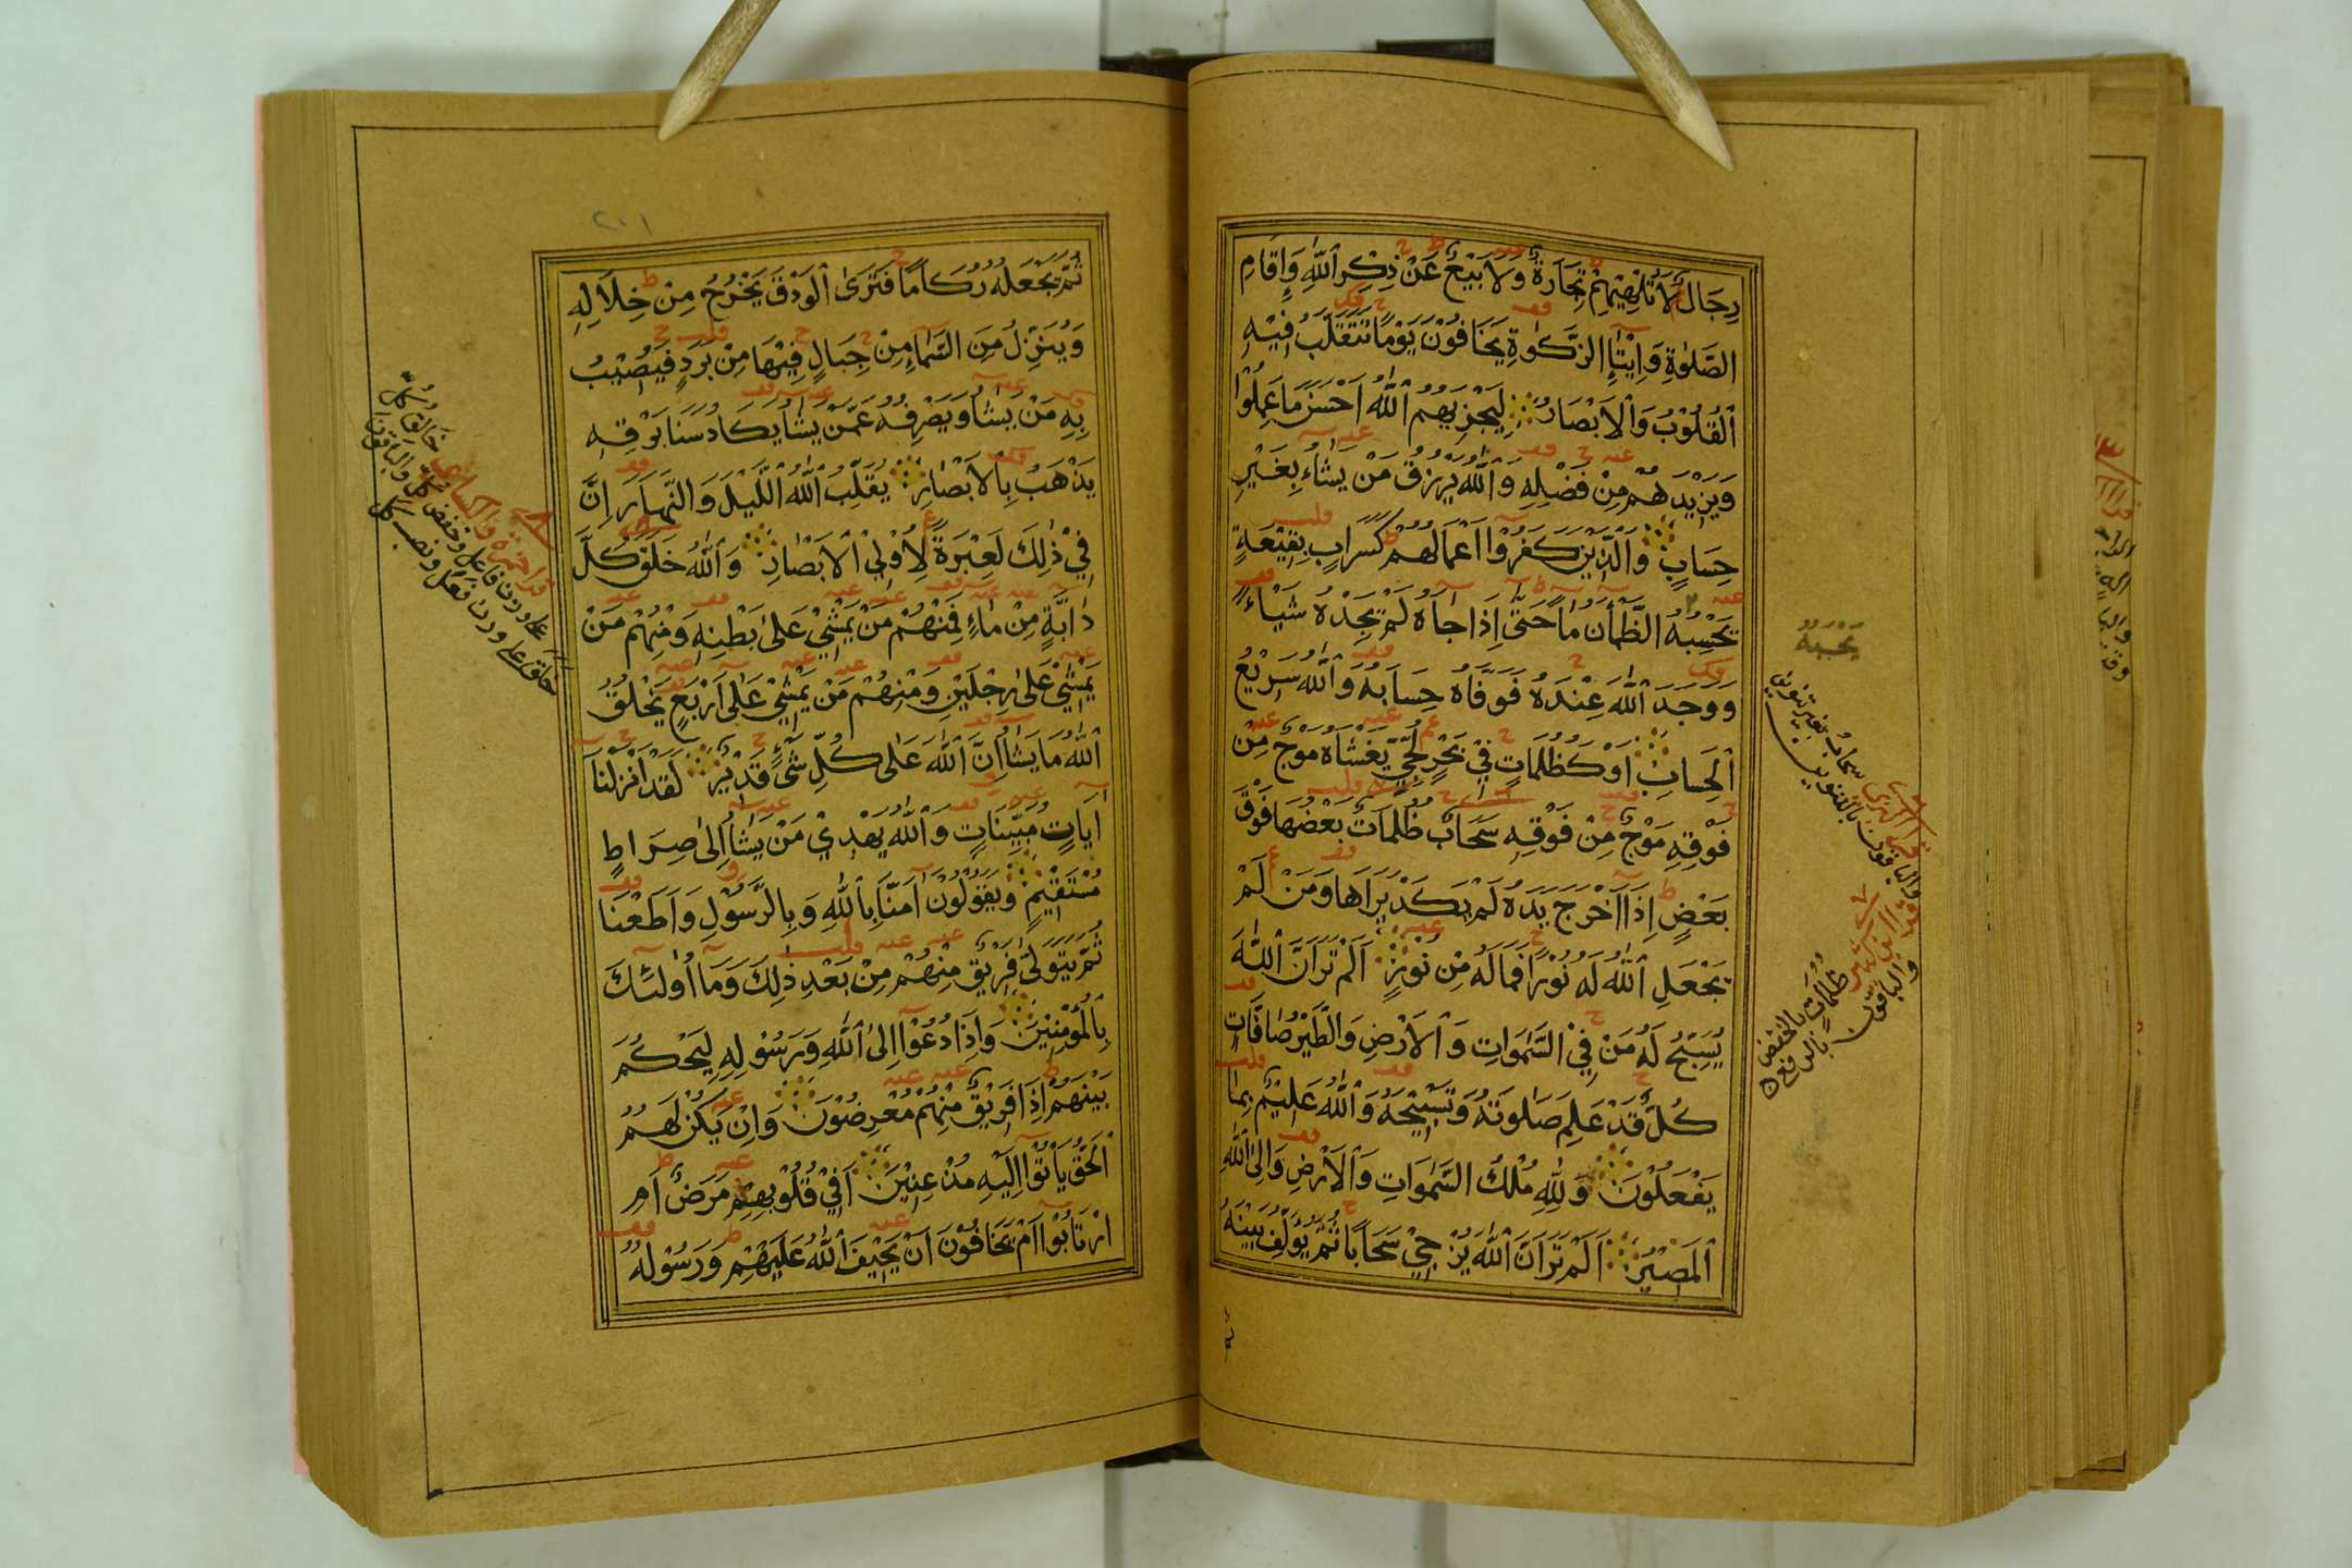 رِجَالٌ لَا تُلْهِيْهِمْ تِجَارَةٌ وَلَا بَيْعٌ عَنْ ذِكْرِ ٱللّٰهِ وَاِقَامِ
الصَّلٰوةِ وَاِيْتَاۤءِ الزَّكٰوةِ يَخَافُوْنَ يَوْمًا تَتَقَلَّبُ فِيْهِ
ٱلْقُلُوْبُ وَٱلْاَبْصَارُ لِيَجْزِيَهُمُ ٱللّٰهُ اَحْسَنَ مَا عَمِلُوْا
وَيَزِيْدَهُمْ مِنْ فَضْلِهِ وَٱللّٰهُ يَرْزُقُ مَنْ يَشَاۤءُ بِغَيْرِ
حِسَابٍ وَالَّذِيْنَ كَفَرُوْا اَعْمَالُهُمْ كَسَرَابٍ بِقِيْعَةٍ
يَحْسِبُهُ الظَّمْأٰنُ مَاۤءً حَتّٰى اِذَا جَاۤءَهُ لَمْ يَجِدْهُ شَيْـًٔا
وَوَجَدَ ٱللّٰهَ عِنْدَهُ فَوَفَّاهُ حِسَابَهُ وَٱللّٰهُ سَرِيْعُ
ٱلْحِسَابِ اَوْ كَظُلُمَاتٍ فِيْ بَحْرٍ لُجِّيٍّ يَغْشَاهُ مَوْجٌ مِنْ
فَوْقِهِ مَوْجٌ مِنْ فَوْقِهِ سَحَابٌ ظُلُمَاتٌ بَعْضُهَا فَوْقَ
بَعْضٍ اِذَا اَخْرَجَ يَدَهُ لَمْ يَكَدْ يَرَاهَا وَمَنْ لَمْ
يَجْعَلِ ٱللّٰهُ لَهُ نُوْرًا فَمَا لَهُ مِنْ نُوْرٍ اَلَمْ تَرَ اَنَّ ٱللّٰهَ
يُسَبِّحُ لَهُ مَنْ فِي السَّمٰوَاتِ وَٱلْاَرْضِ وَالطَّيْرُ صَاۤفَّاتٍ
كُلٌّ قَدْ عَلِمَ صَلٰوتَهُ وَتَسْبِيْحَهُ وَٱللّٰهُ عَلِيْمٌ بِمَا
يَفْعَلُوْنَ وَلِلّٰهِ مُلْكُ السَّمٰوَاتِ وَٱلْاَرْضِ وَاِلَى ٱللّٰهِ
ٱلْمَصِيْرُ اَلَمْ تَرَ اَنَّ ٱللّٰهَ يُزْجِيْ سَحَابًا ثُمَّ يُؤَلِّفُ بَيْنَهُ
يحسبه
سحاب بغير تنوين
والباقون بالتنوين
قرا ابن كثير
ظلمات بالخفض
والباقون بالرفع
٢٠١
ثُمَّ يَجْعَلُهُ رُكَامًا فَتَرَى ٱلْوَدْقَ يَخْرُجُ مِنْ خِلَالِهِ
وَيُنَزِّلُ مِنَ السَّمَاۤءِ مِنْ جِبَالٍ فِيْهَا مِنْ بَرَدٍ فَيُصِيْبُ
بِهِ مَنْ يَشَاۤءُ وَيَصْرِفُهُ عَمَّنْ يَشَاۤءُ يَكَادُ سَنَا بَرْقِهِ
يَذْهَبُ بِالْاَبْصَارِ يُقَلِّبُ ٱللّٰهُ اللَّيْلَ وَالنَّهَارَ اِنَّ
فِيْ ذٰلِكَ لَعِبْرَةً لِاُولِي ٱلْاَبْصَارِ وَٱللّٰهُ خَلَقَ كُلَّ
دَاۤبَّةٍ مِنْ مَاۤءٍ فَمِنْهُمْ مَنْ يَمْشِيْ عَلٰى بَطْنِهِ وَمِنْهُمْ مَنْ
يَمْشِيْ عَلٰى رِجْلَيْنِ وَمِنْهُمْ مَنْ يَمْشِيْ عَلٰى اَرْبَعٍ يَخْلُقُ
ٱللّٰهُ مَا يَشَاۤءُ اِنَّ ٱللّٰهَ عَلٰى كُلِّ شَيْءٍ قَدِيْرٌ لَقَدْ اَنْزَلْنَا
اٰيَاتٍ مُبَيِّنَاتٍ وَٱللّٰهُ يَهْدِيْ مَنْ يَشَاۤءُ اِلٰى صِرَاطٍ
مُسْتَقِيْمٍ وَيَقُوْلُوْنَ اٰمَنَّا بِٱللّٰهِ وَبِالرَّسُوْلِ وَاَطَعْنَا
ثُمَّ يَتَوَلّٰى فَرِيْقٌ مِنْهُمْ مِنْ بَعْدِ ذٰلِكَ وَمَا اُولٰئِكَ
بِالْمُؤْمِنِيْنَ وَاِذَا دُعُوْا اِلَى ٱللّٰهِ وَرَسُوْلِهِ لِيَحْكُمَ
بَيْنَهُمْ اِذَا فَرِيْقٌ مِنْهُمْ مُعْرِضُوْنَ وَاِنْ يَكُنْ لَهُمُ
ٱلْحَقُّ يَأْتُوْا اِلَيْهِ مُذْعِنِيْنَ اَفِيْ قُلُوْبِهِمْ مَرَضٌ اَمِ
ارْتَابُوْا اَمْ يَخَافُوْنَ اَنْ يَحِيْفَ ٱللّٰهُ عَلَيْهِمْ وَرَسُوْلُهُ
قرا حمزة والكسائى خالق كل
على وزن فاعل وخفض كل والباقون
خلق على وزن فعل ونصب كل